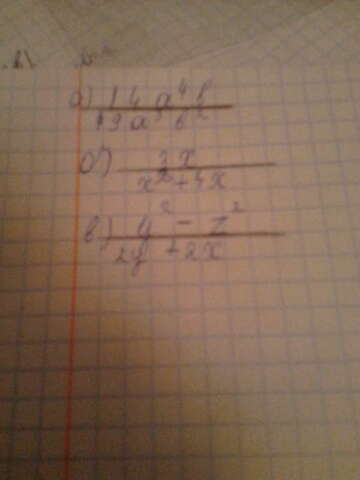 а) 14 a⁴ b
49 a³ b²
б) 3x
x² + 4x
в) y² - z²
2y + 2x